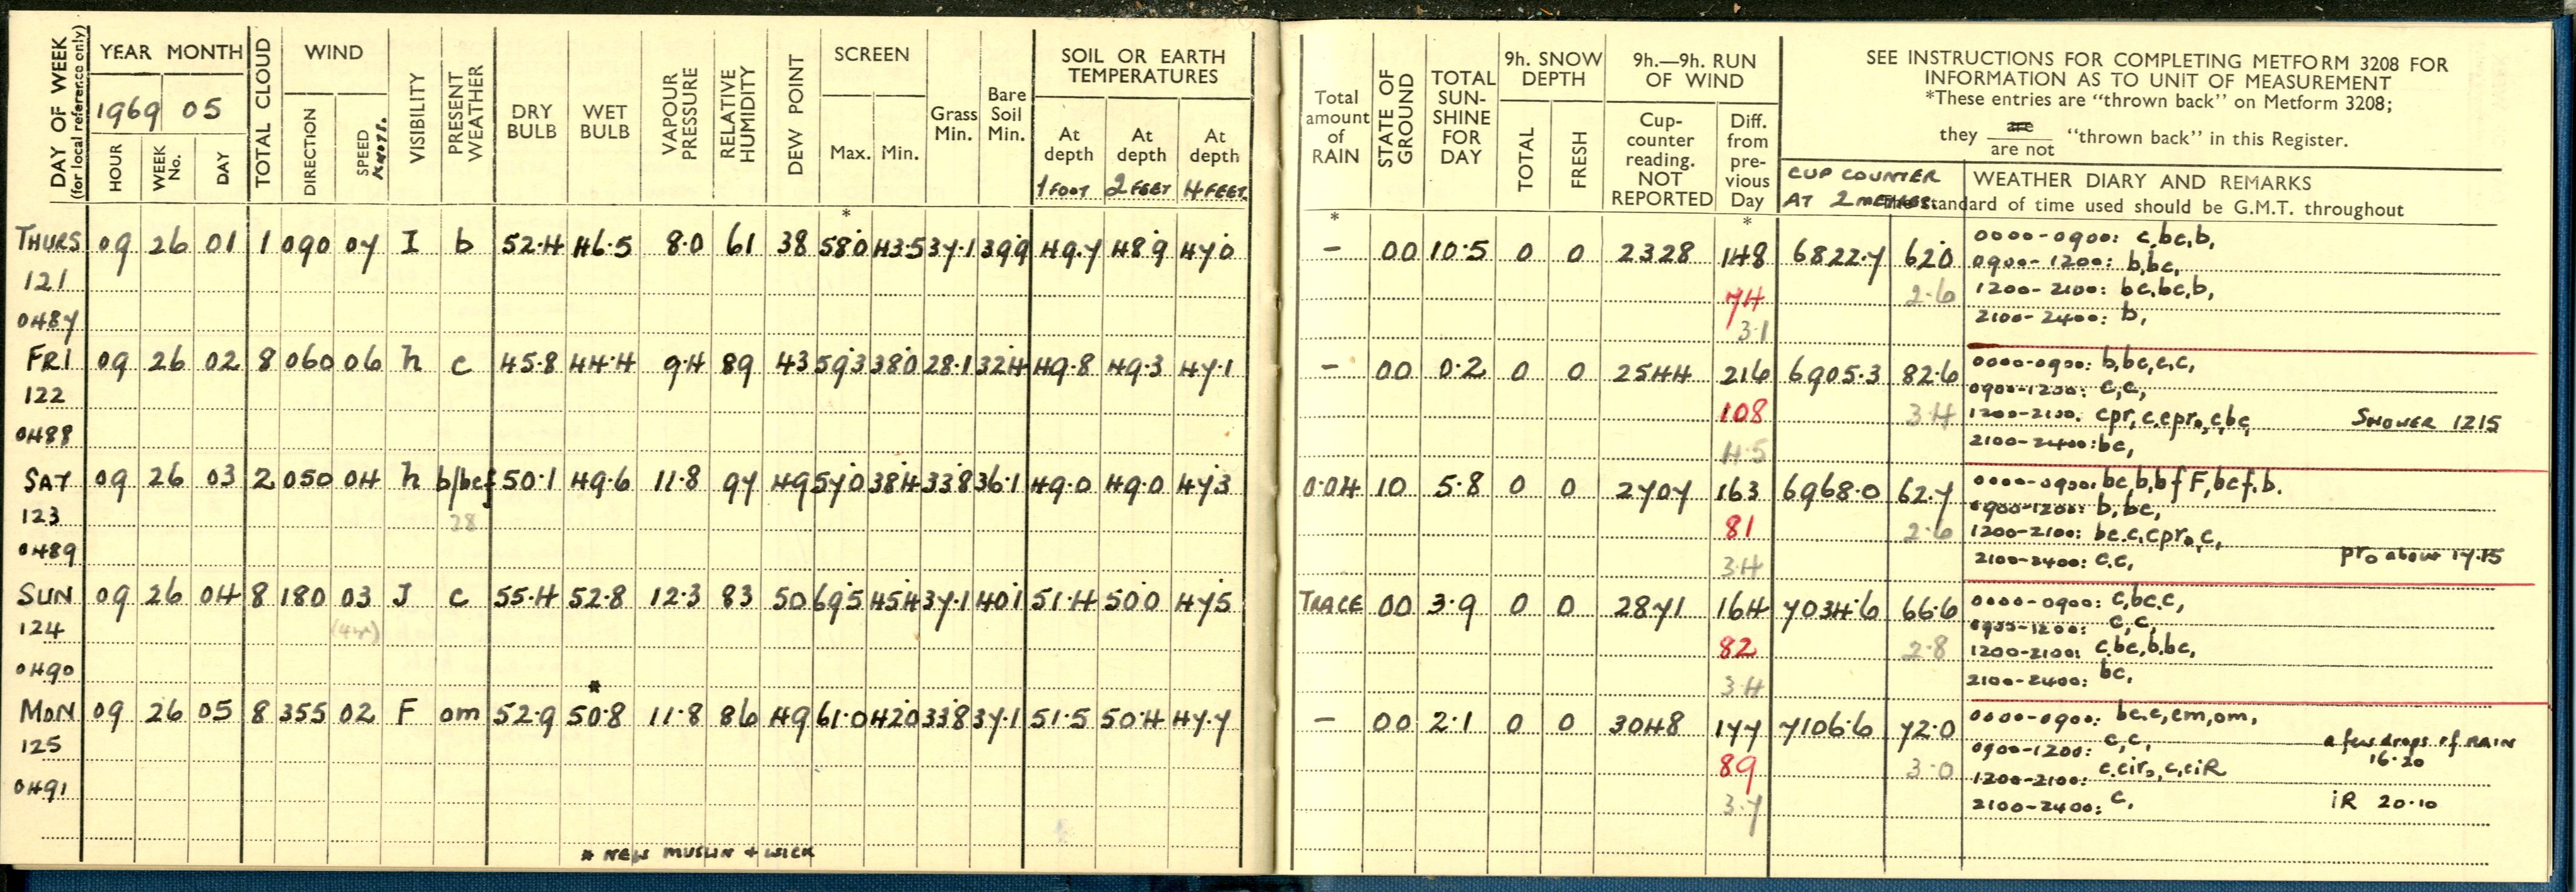 DAY OF WEEK (for local reference only)
YEAR MONTH
1969 05
HOUR WEEK No. DAY
TOTAL CLOUD
WIND
DIRECTION SPEED KNOTS.
VISIBILITY
PRESENT WEATHER
DRY BULB
WET BULB
VAPOUR PRESSURE
RELATIVE HUMIDITY
DEW POINT
SCREEN
Max. Min.
Grass Min.
Bare Soil Min.
SOIL OR EARTH TEMPERATURES
At depth 1 FOOT
At depth 2 FEET
At depth 4 FEET.
Total amount of RAIN
STATE OF GROUND
TOTAL SUN-SHINE FOR DAY
9h. SNOW DEPTH
TOTAL FRESH
9h.—9h. RUN OF WIND
Cup-counter reading. NOT REPORTED
Diff. from pre-vious Day
SEE INSTRUCTIONS FOR COMPLETING METFORM 3208 FOR
INFORMATION AS TO UNIT OF MEASUREMENT
*These entries are "thrown back" on Metform 3208;
they are / are not "thrown back" in this Register.
CUP COUNTER AT 2 METRES.
WEATHER DIARY AND REMARKS
standard of time used should be G.M.T. throughout
* * *
THURS 09 26 01 1 090 07 I b 52.4 46.5 8.0 61 38 58.0 43.5 37.1 39.9 49.7 48.9 47.0 – 00 10.5 0 0 2328 148 6822.7 62.0 0000-0900: c,bc,b,
0900-1200: b,bc,
121 74 2.6 1200-2100: bc,bc,b,
0487 3.1 2100-2400: b,
FRI 09 26 02 8 060 06 h c 45.8 44.4 9.4 89 43 59.3 38.0 28.1 32.4 49.8 49.3 47.1 – 00 0.2 0 0 2544 216 6905.3 82.6 0000-0900: b,bc,c,c,
0900-1200: c,c,
122 108 3.4 1200-2100: cpr,c,cpro,c,bc, SHOWER 1215
0488 4.5 2100-2400: bc,
SAT 09 26 03 2 050 04 h b/bcf 50.1 49.6 11.8 97 49 57.0 38.4 33.8 36.1 49.0 49.0 47.3 0.04 10 5.8 0 0 2707 163 6968.0 62.7 0000-0900: bc,b,bfF,bcf,b.
0900-1200: b,bc,
123 28 81 2.6 1200-2100: bc,c,cpro,c,
0489 3.4 2100-2400: c,c, pro about 17.15
SUN 09 26 04 8 180 03 J c 55.4 52.8 12.3 83 50 69.5 45.4 37.1 40.1 51.4 50.0 47.5 TRACE 00 3.9 0 0 2871 164 7034.6 66.6 0000-0900: c,bc,c,
0900-1200: c,c,
124 82 2.8 1200-2100: c,bc,b,bc,
0490 3.4 2100-2400: bc,
*
MON 09 26 05 8 355 02 F om 52.9 50.8 11.8 86 49 61.0 42.0 33.8 37.1 51.5 50.4 47.7 – 00 2.1 0 0 3048 177 7106.6 72.0 0000-0900: bc,c,cm,om,
0900-1200: c,c, a few drops of RAIN 16.20
125 89 3.0 1200-2100: c,ciro,c,ciR
0491 3.7 2100-2400: c, iR 20.10
* NEW MUSLIN + WICK